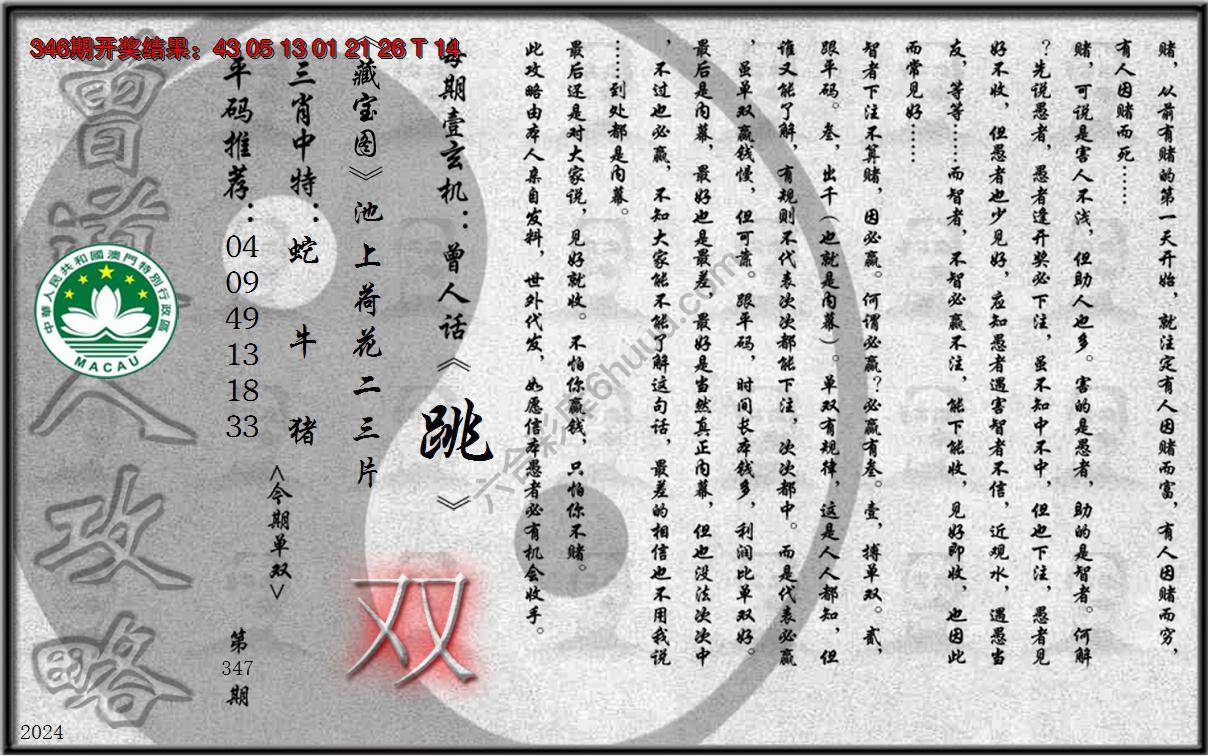 346期开奖结果：43 05 13 01 21 26 T 14
赌，从前有赌的第一天开始，就注定有人因赌而富，有人因赌而穷，
有人因赌而死……
赌，可说是害人不浅，但助人也多。害的是愚者，助的是智者。何解
？先说愚者，愚者逢开奖必下注，虽不知中不中，但也下注，愚者见
好不收，但愚者也少见好，应知愚者遇害智者不信，近观水，遇愚当
友，等等……而智者，不智必赢不注，能下能收，见好即收，也因此
而常见好……
智者下注不算赌，因必赢。何谓必赢？必赢有叁。壹，搏单双。贰，
跟平码。叁，出千（也就是内幕）。单双有规律，这是人人都知，但
谁又能了解，有规则不代表次次都能下注，次次都中。而是代表必赢
，虽单双赢钱慢，但可靠。跟平码，时间长本钱多，利润比单双好。
最后是内幕，最好也是最差，最好是当然真正内幕，但也没法次次中
，不过也必赢，不知大家能不能了解这句话，最差的相信也不用我说
……到处都是内幕。
最后还是对大家说，见好就收。不怕你赢钱，只怕你不赌。
此攻略由本人亲自发料，世外代发，如愿信本愚者必有机会收手。
每期壹玄机：曾人话《跳》
《藏宝图》池上荷花二三片
双
三肖中特：蛇 牛 猪
<今期单双>
平码推荐：04 09 49 13 18 33
第347期
曾道人攻略
中華人民共和國澳門特別行政區
MACAU
六合彩库6huuu.com
2024